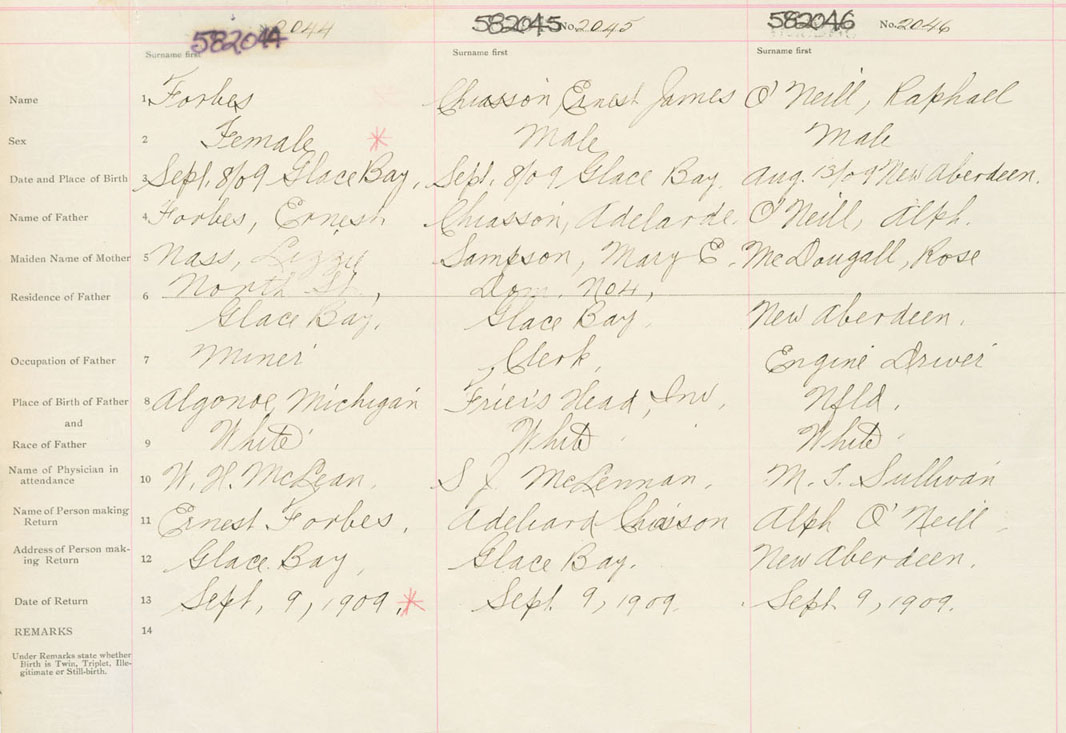 582044 2044 582045 No. 2045 582046 No. 2046
Surname first Surname first Surname first
Name 1 Forbes Chiasson, Ernest James O'Neill, Raphael
Sex 2 Female Male Male
Date and Place of Birth 3 Sept. 8/09 Glace Bay. Sept. 8/09 Glace Bay. Aug. 13/09 New Aberdeen.
Name of Father 4 Forbes, Ernest Chiasson, Adelarde. O'Neill, Alph.
Maiden Name of Mother 5 Nass, Lizzie Sampson, Mary E. McDougall, Rose
Residence of Father 6 North St., Dom. No 4,
Glace Bay. Glace Bay. New Aberdeen.
Occupation of Father 7 Miner Clerk, Engine Driver
Place of Birth of Father 8 Algonoe, Michigan Frier's Head, Inv. Nfld.
and
Race of Father 9 White White White
Name of Physician in
attendance 10 W. H. McLean. S J McLennan. M. T. Sullivan
Name of Person making
Return 11 Ernest Forbes. Adeliard Chiasson Alph O'Neill
Address of Person mak-
ing Return 12 Glace Bay, Glace Bay. New Aberdeen.
Date of Return 13 Sept, 9, 1909. Sept. 9, 1909. Sept. 9, 1909.
REMARKS 14
Under Remarks state whether
Birth is Twin, Triplet, Ille-
gitimate or Still-birth.